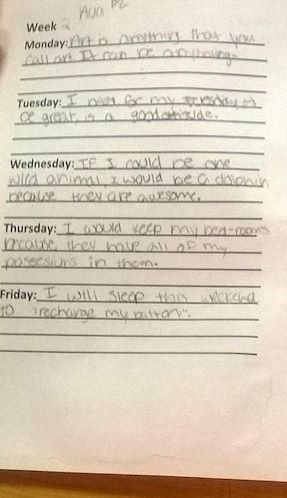 Ava P2
Week 2
Monday: Art is anything that you
call art It can be anything.
Tuesday: I need for my
be great, is a good attitude.
Wednesday: If I could be one
wild animal, I would be a dolphin
because they are awesome.
Thursday: I would keep my bed-rooms
because, they have all of my
in them.
Friday: I will sleep this weekend
to "recharge my